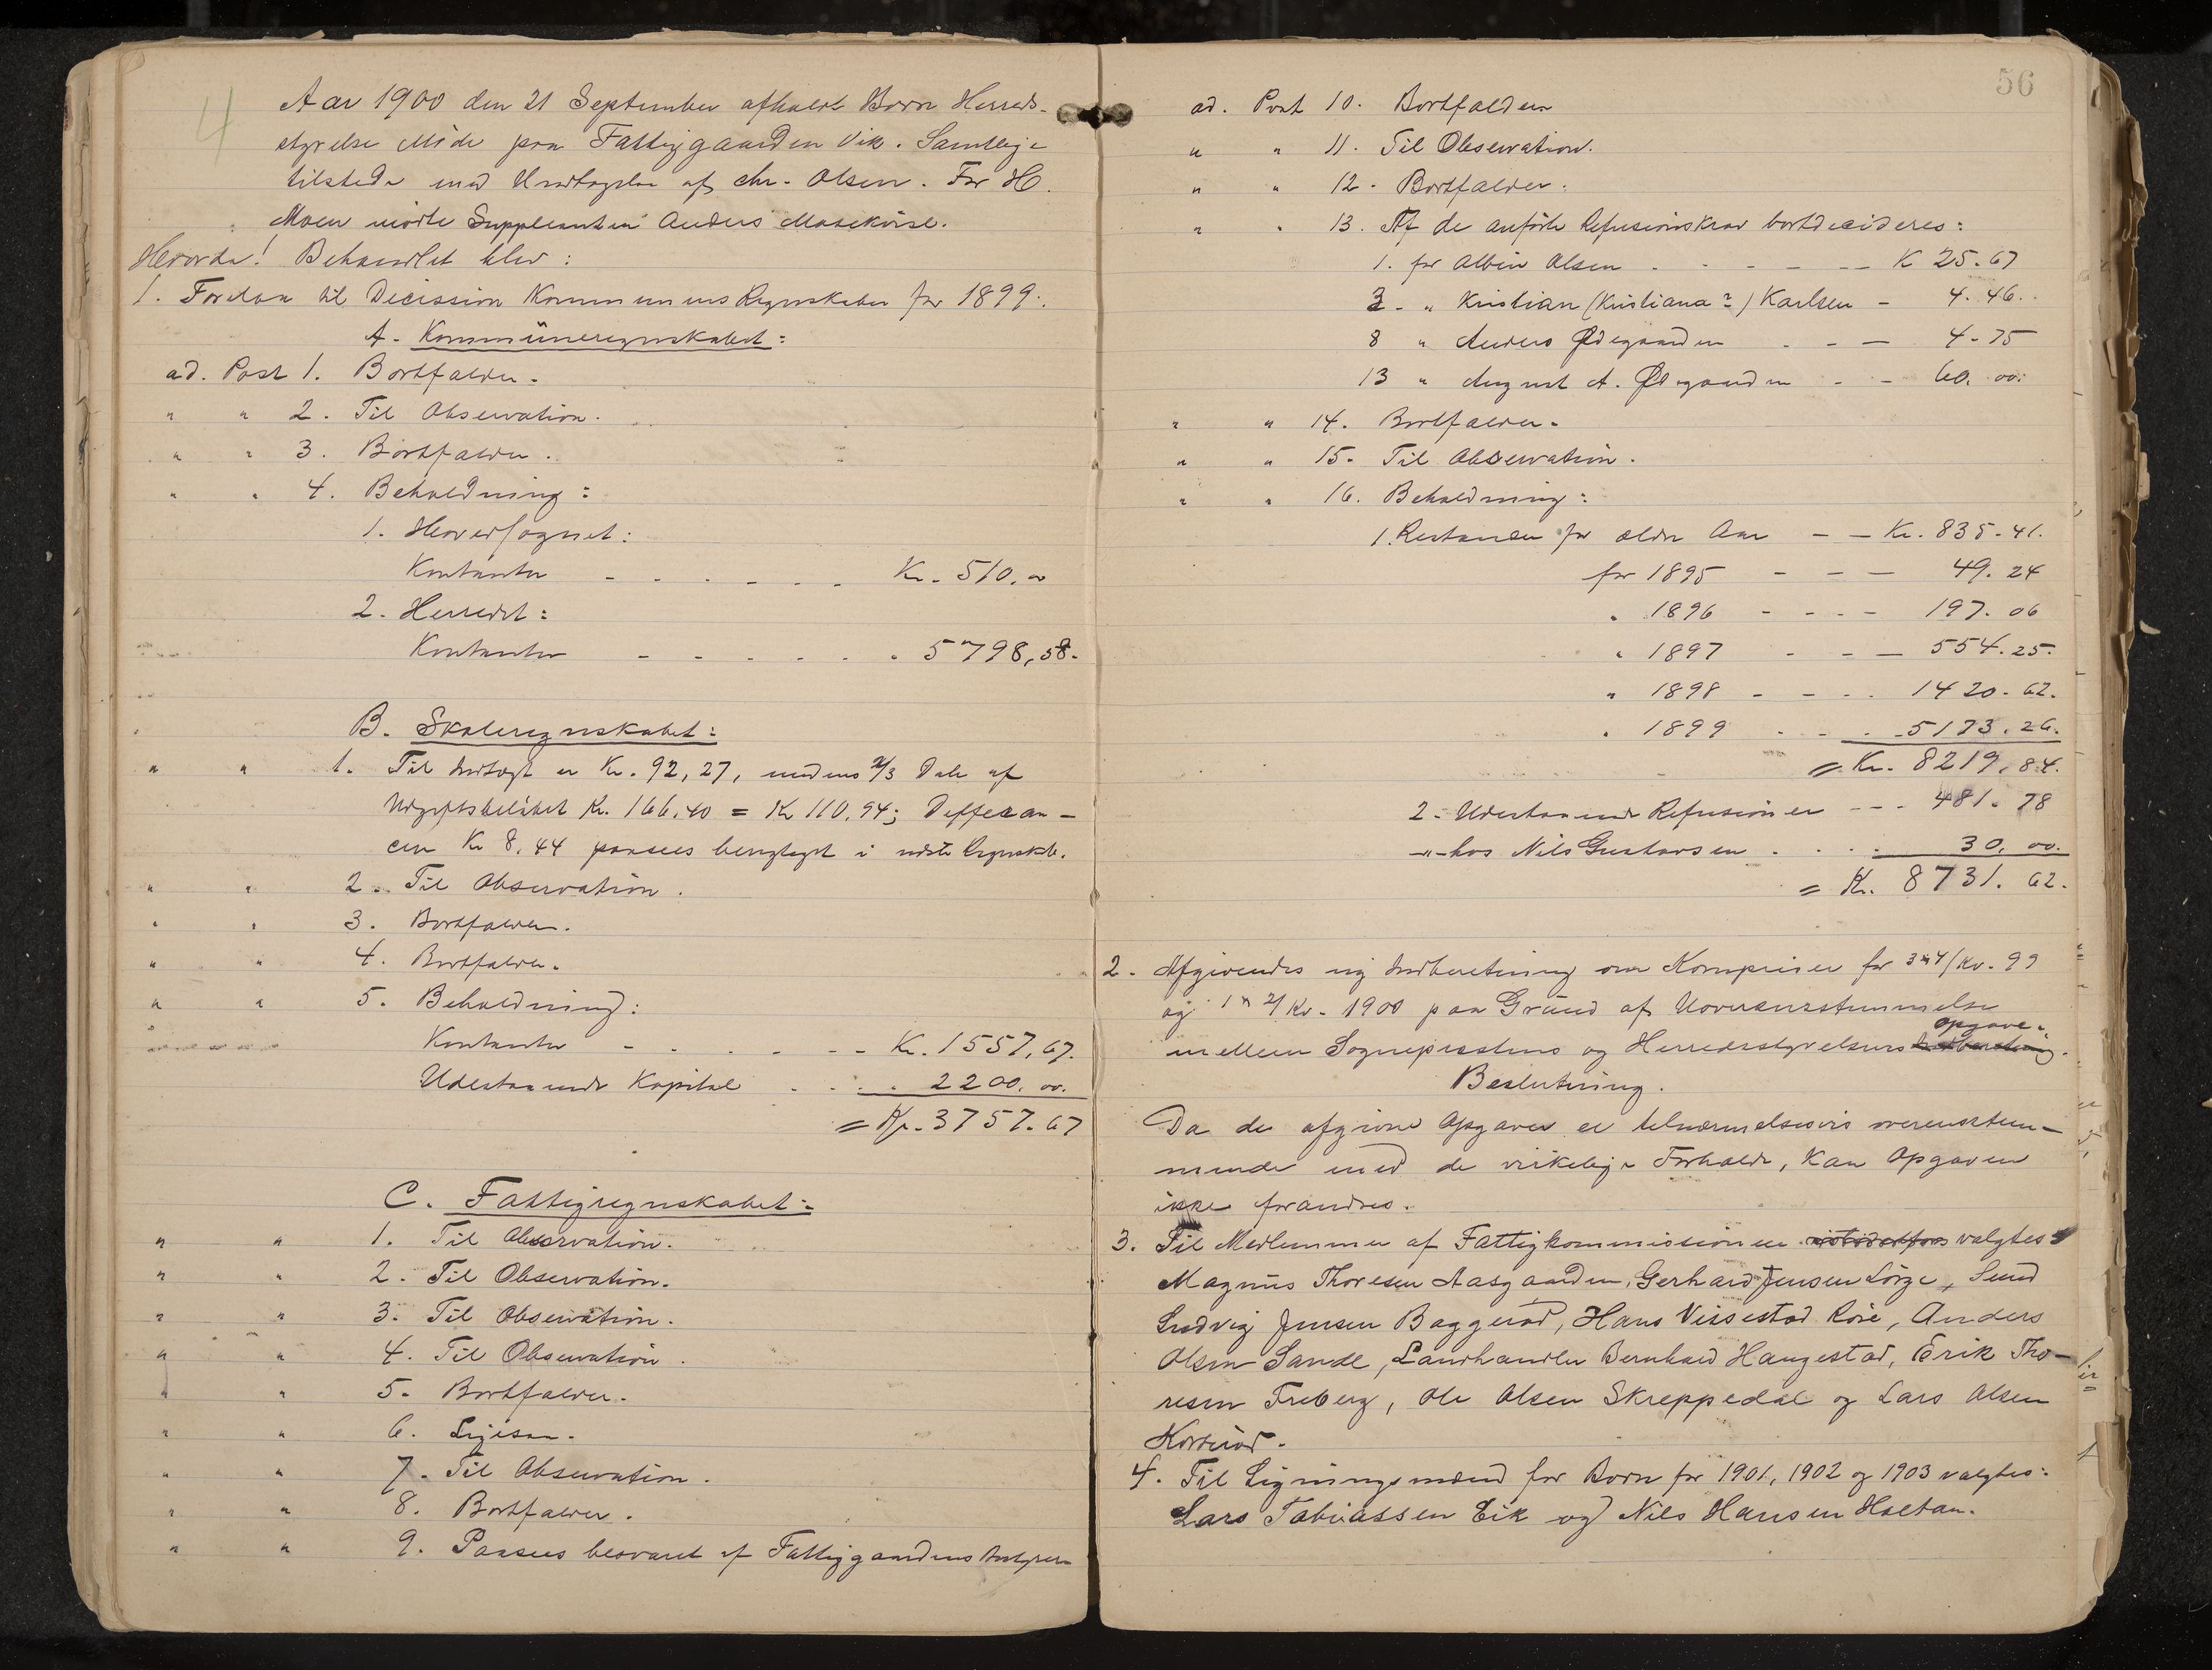 4
Aar 1900 den 21 September afholdt Borre Herreds-
styrelse Møde paa Fattiggaarden Vik. Samtlige
tilstede med Undtagelse af Chr. Olsen. For H.
Moen mødte Supplianten Anders
Hvorda! Behandlet blev:
1. Foretoges til Decission Kommunens Regnskaber for 1899.
A. Kommüneregnskabet:
ad. Post 1. Bortfalder.
" " 2. Til Observation.
" " 3. Bortfalder.
" " 4. Beholdning:
1. Hovedsognet:
Kontanter - - - - - - Kr. 510.00
2. Herredet:
Kontanter - - - - - - " 5798,58.
B. Skoleregnskabet:
" " 1. Til Indtægt er Kr. 92,27, medens 2/3 Dele af
Udgiftsbeløbet Kr. 166.40 = Kr 110.94; Differan-
cen Kr 8.44 paasees berigtiget i næste Regnskab.
" " 2. Til Observation.
" " 3. Bortfalder.
" " 4. Bortfalder.
" " 5. Beholdning:
Kontanter - - - - - - Kr. 1557,67.
Udestaaende Kapital - - - 2200.00.
= Kr. 3757.67
C. Fattigregnskabet:
" " 1. Til Observation.
" " 2. Til Observation.
" " 3. Til Observation.
" " 4. Til Observation.
" " 5. Bortfalder.
" " 6. Ligesaa.
" " 7. Til Observation.
" " 8. Bortfalder.
" " 9. Paasees besvaret af Fattiggaardens Bestyrer
56
ad. Post 10. Bortfalder
" " 11. Til Observation.
" " 12. Bortfalder.
" " 13. Af de anførte Refusionskrav bortdecideres:
1. for Albin Olsen - - - - - K 25.67
3 - " Kristian (Kristiana?) Karlsen - 4.46.
8 " Anders Ødegaarden - - - 4.75
13 " August A. Ødegaarden - - 60.00.
" " 14. Bortfalder.
" " 15. Til Observation.
" " 16. Beholdning:
1. Restancer for ældre Aar - - Kr. 835.41.
for 1895 - - - 49.24
" 1896 - - - - 197.06
" 1897 - - - 554.25.
" 1898 - - - - 1420.62.
" 1899 - - - 5173.26.
= Kr. 8219.84.
2. Udestaaende Refusioner - - - 481.78
-"- hos Nils Gustavsen - - - - 30.00.
= Kr. 8731.62.
2. Afgivendes ny Indberetning om Kornpriser for 3 & 4/Kv. 99
og 1 & 2/Kv. 1900 paa Gründ af Uoverensstemmelse
opgave.
mellem Sogneprestens og Herredsstyrelsens Indberetning.
Beslutning.
Da de afgivne Opgaver er tilnærmelsesvis overensstem-
mende med de virkelige Forholde, kan Opgaven
ikke forandres.
3. Til Medlemmer af Fattigkommissionen valgtes
Magnus Thoresen Aasgaarden, Gerhard Jensen Lørge, Sund
Ludvig Jensen Baggerød, Hans Virsestad Røre, Anders
Olsen Sande, Landhandler Bernhard Haugestad, Erik Tho-
resen Freberg, Ole Olsen Skreppedal og Lars Olsen
4. Til Ligningsmænd for Borre for 1901, 1902 og 1903 valgtes:
Lars Tobiassen Eik og Nils Hansen Holtan.